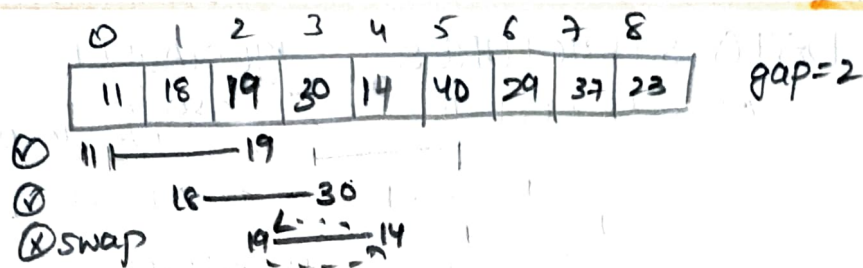 0 1 2 3 4 5 6 7 8
11 18 19 30 14 40 29 37 23 gap=2
11 19
18 30
swap 19 14